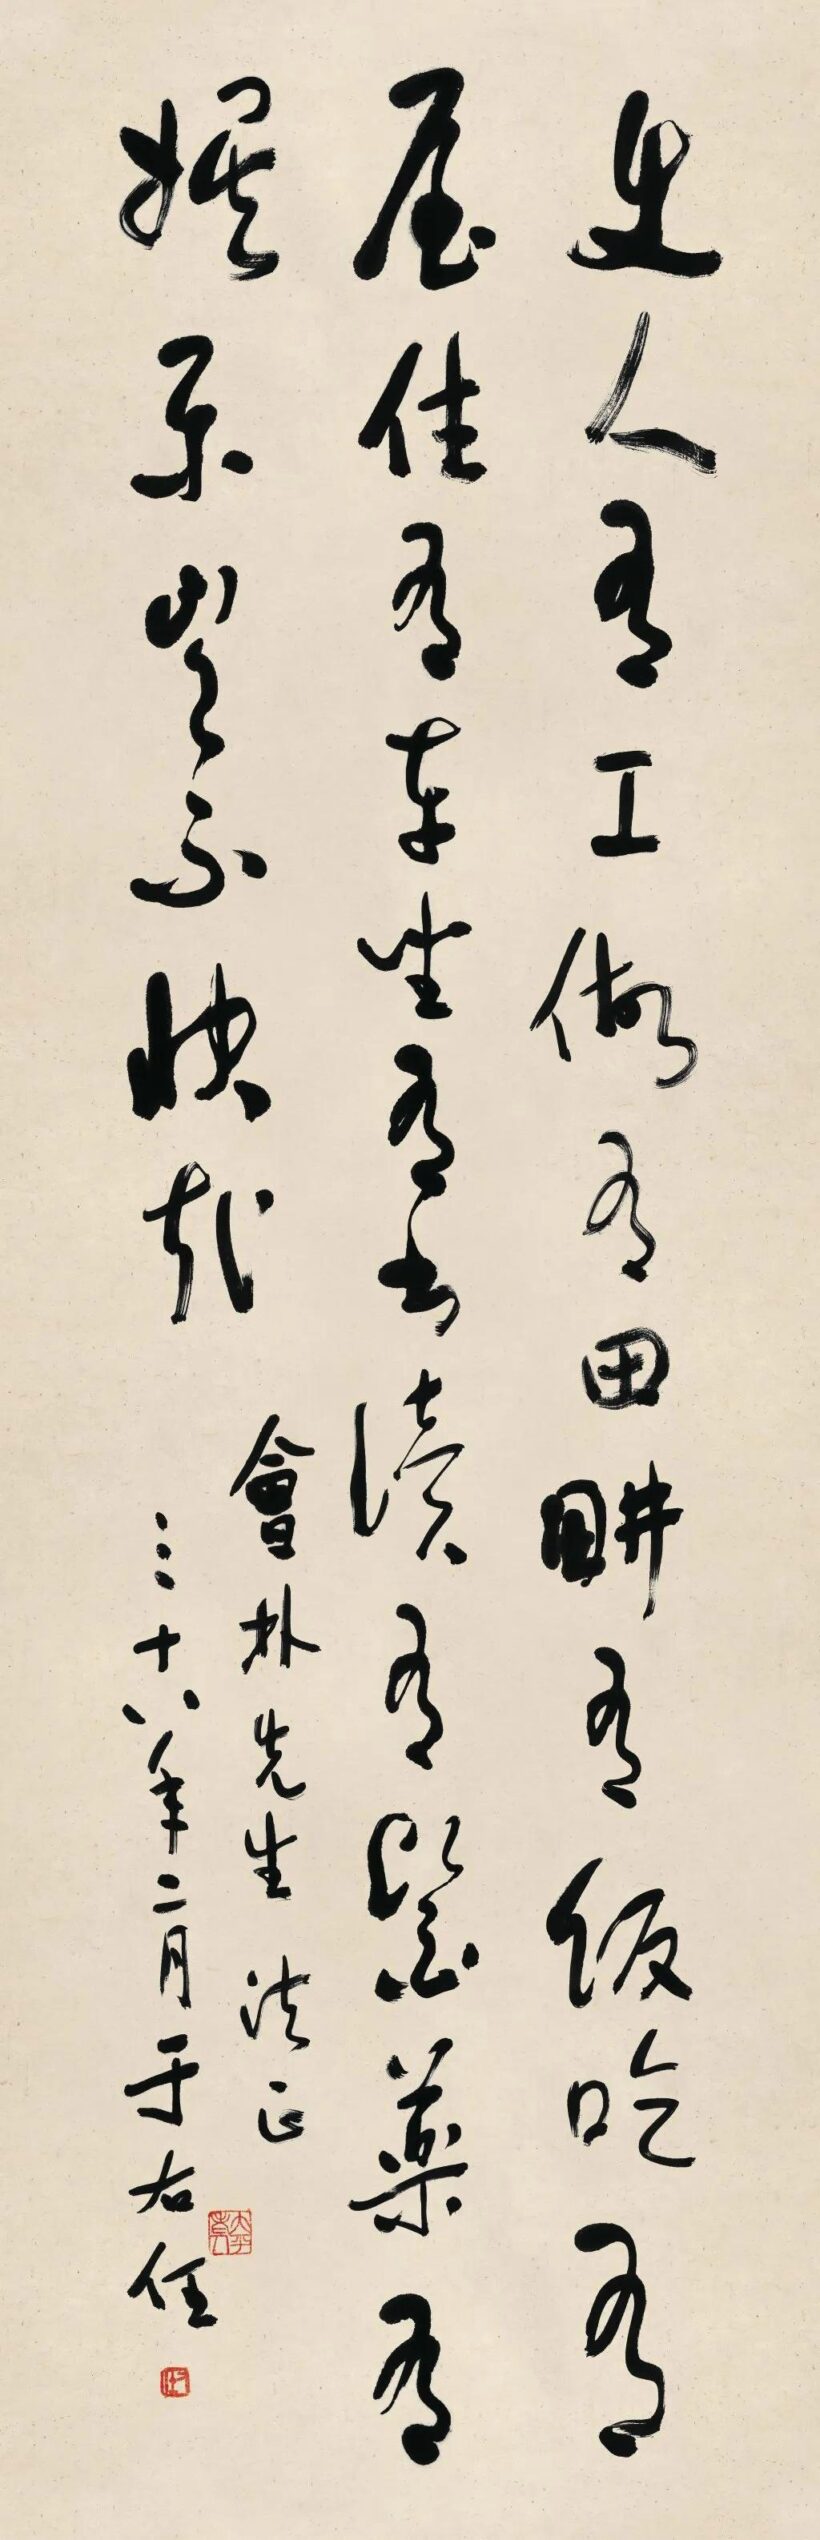 使人有工做有田畊有飯吃有
屋住有車坐有書讀有醫藥有
娛樂豈不快哉
會朴先生 法正
三十八年二月 于右任